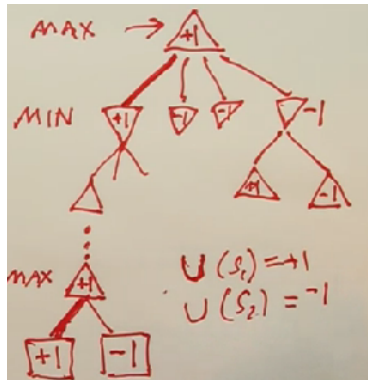 MAX → +1
MIN +1 -1 -1 -1
+1 -1
MAX +1
+1 -1
U (S₁) = +1
U (S₂) = -1